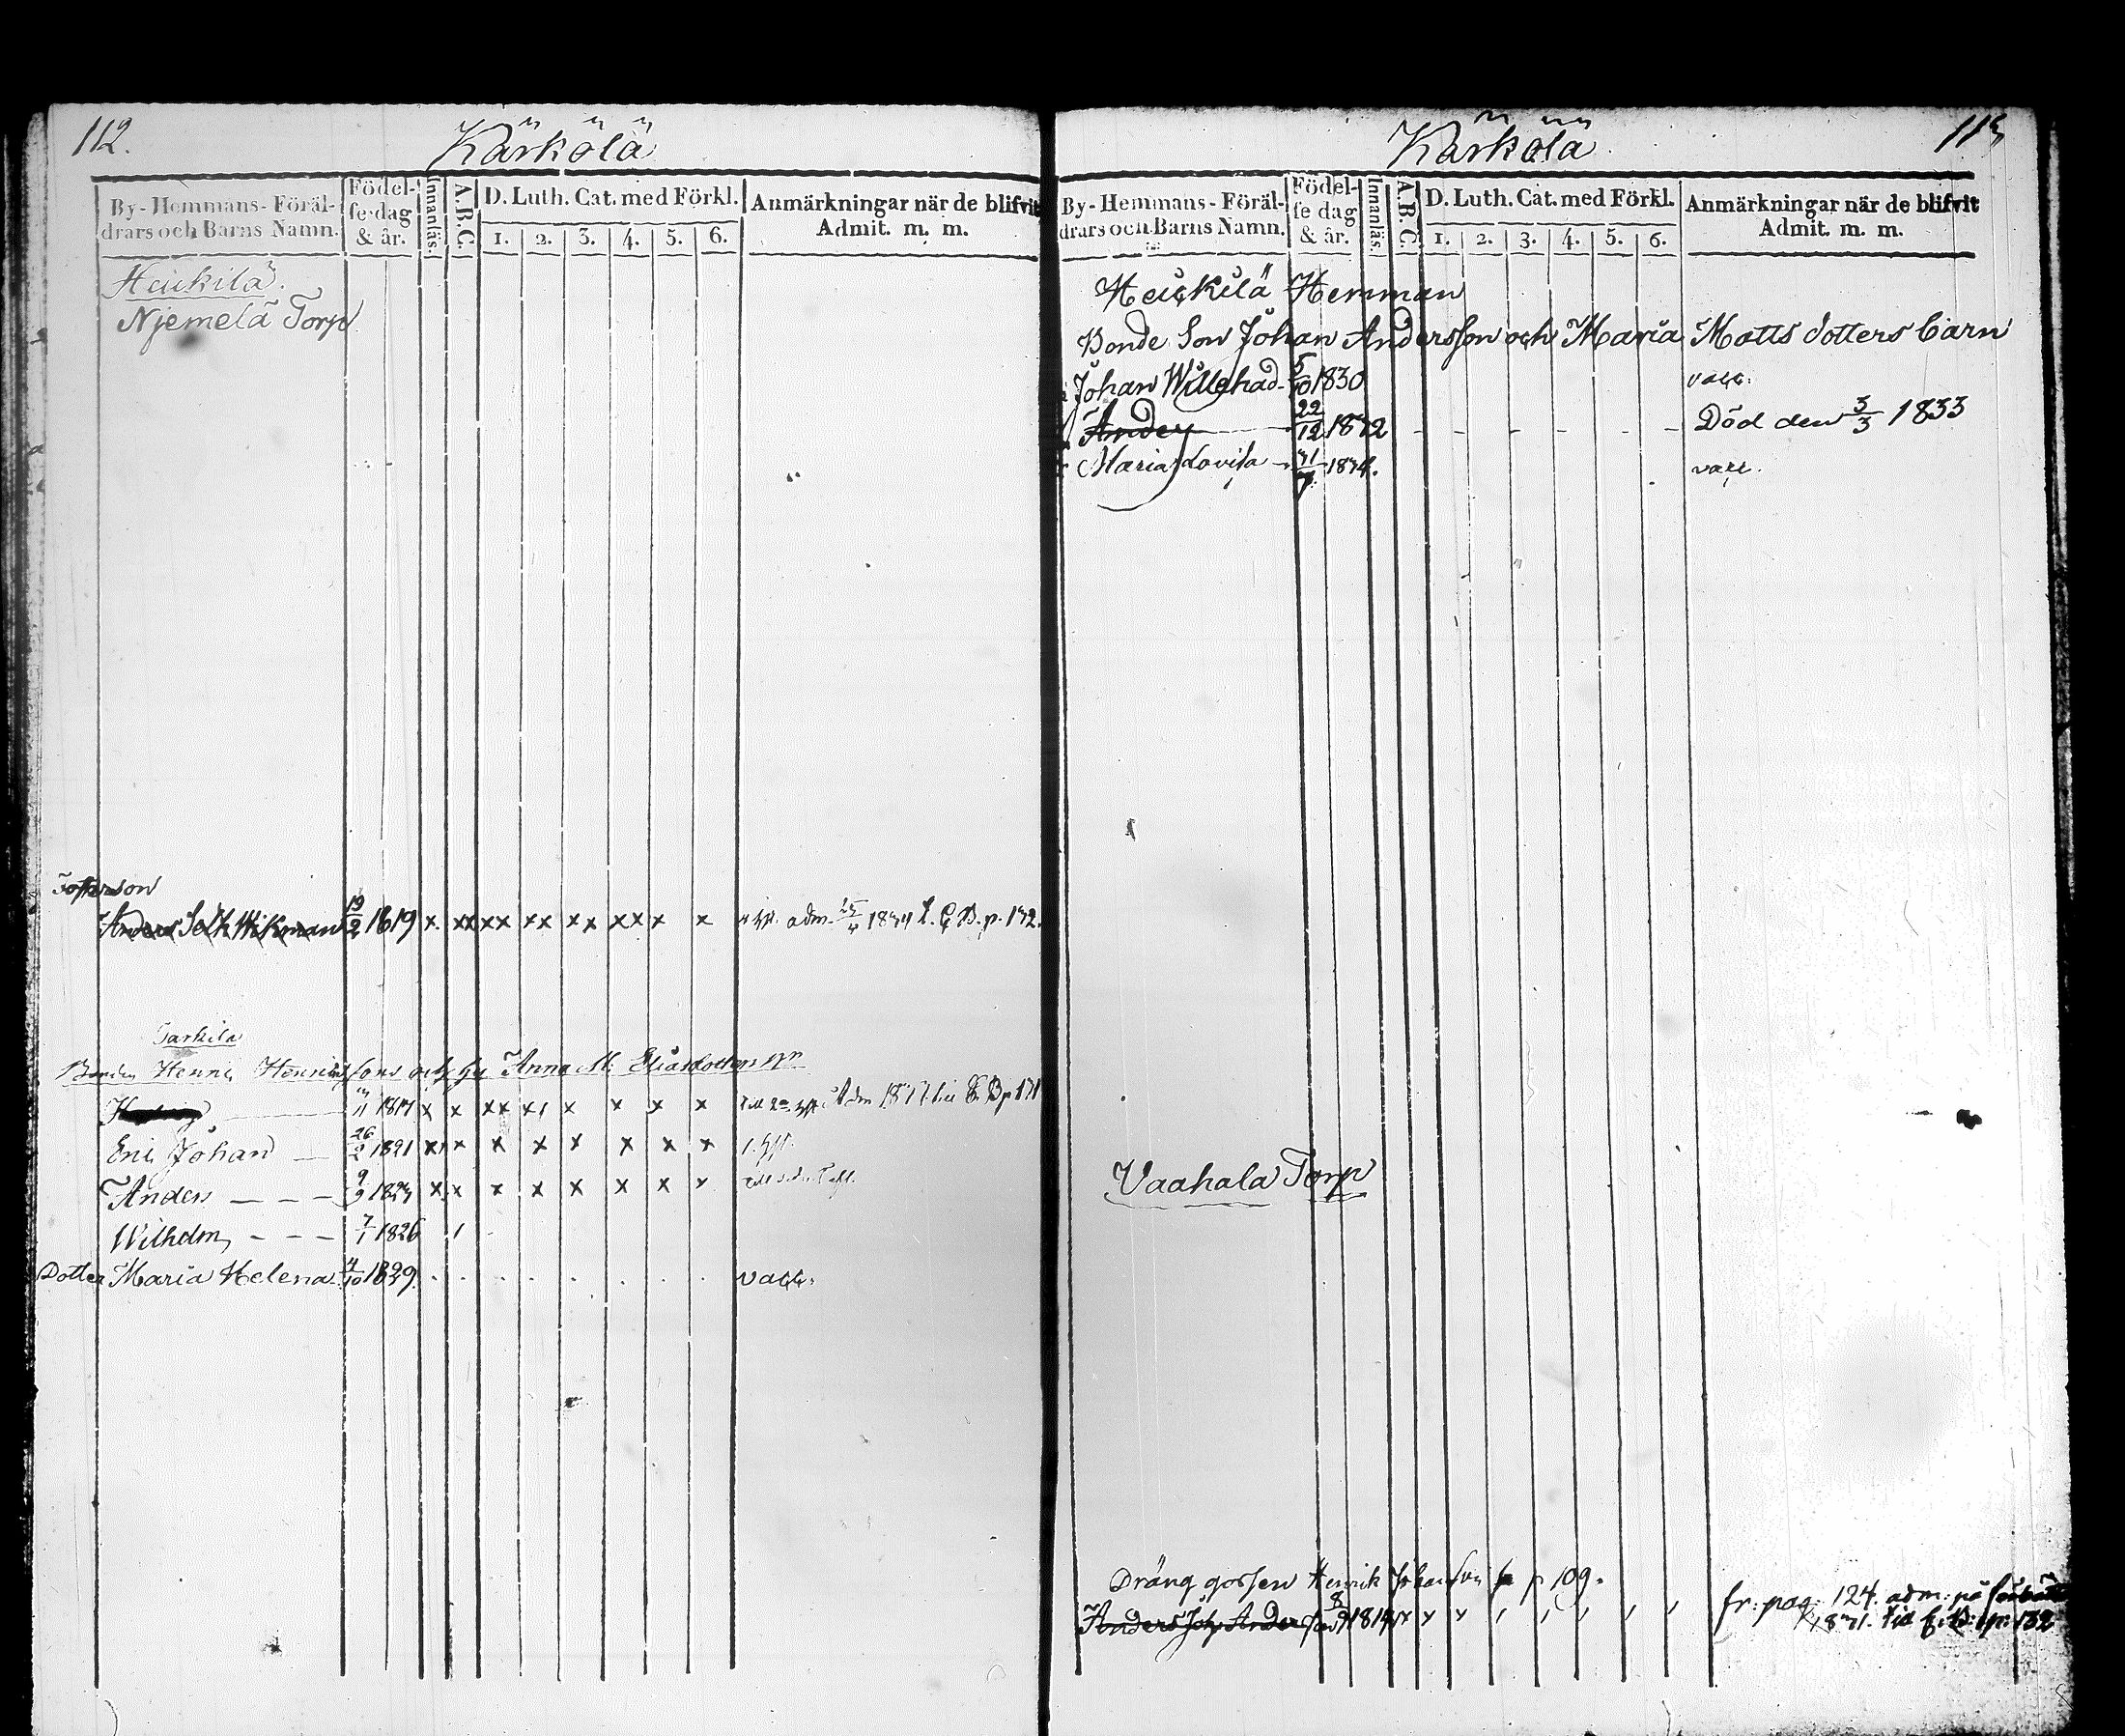 112.
Kärkölä
By-Hemmans-Föräl-
drars och Barns Namn.
Födel-
se dag
& år.
Innanläs.
A.B.C.
D. Luth. Cat. med Förkl.
1. 2. 3. 4. 5. 6.
Anmärkningar när de blifvit
Admit. m. m.
Heickilä.
Njemelä Torp
Anders Wikman 19/2 1819 x. xx xx xx xx xx x x adm. C. B. p. 132.
Tarkila
Henric Anna M: Eliasdotters
11 x x xx x x x x
Eric Johan — 26/2 1821 x x x x x x x x
Anders — — — 9/9 x x x x x x x x
Wilhelm — — — 7/1 1826 1
Dotter Maria Helena 4/10 1829. . . . . . . . vacc.
113
Kärkölä
By-Hemmans-Föräl-
drars och Barns Namn.
Födel-
se dag
& år.
Innanläs.
A.B.C.
D. Luth. Cat. med Förkl.
1. 2. 3. 4. 5. 6.
Anmärkningar när de blifvit
Admit. m. m.
Heickilä Hemman
Bonde Son Johan Andersson och Maria Matts dotters barn
Johan Willehad 5/10 1830 vacc.
Anders 22/12 Död den 3/3 1833
Maria Lovisa 31/7 vacc.
Vaahala Torp
Dräng gossen Henrik Johansson p 109.
Anders Joh. Andersson fr: pag: 124. adm: på
p. 132